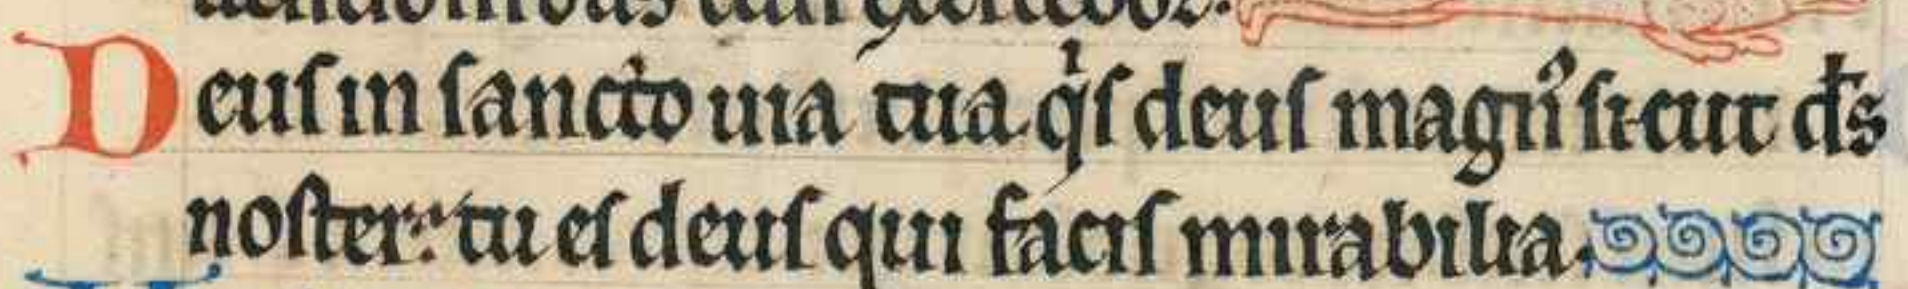 Deuſ in ſancto uia tua. qͥſ deuſ magnꝰ ſicut d̄s
noſter: tu eſ deuſ qui faciſ mirabilia.